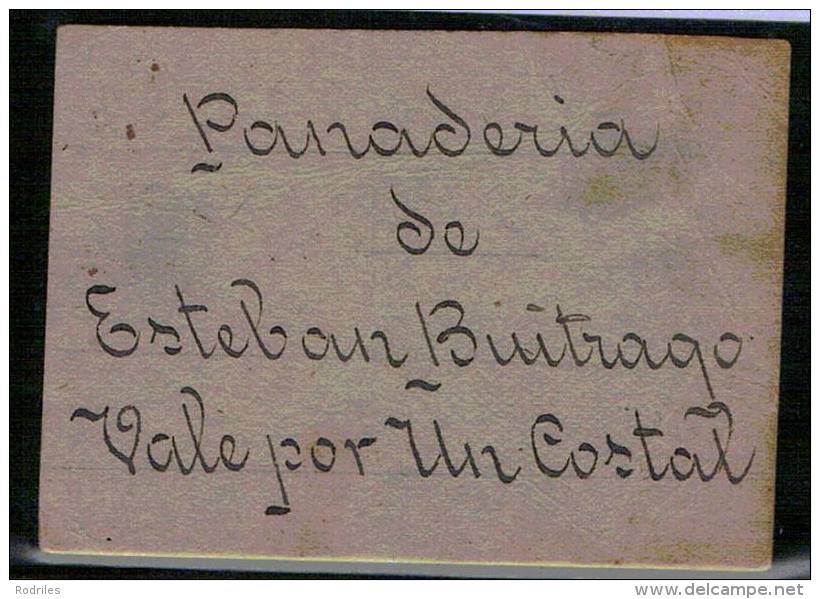 Panaderia
de
Esteban Buitrago
Vale por Un Costal
Rodriles
delcampe.net